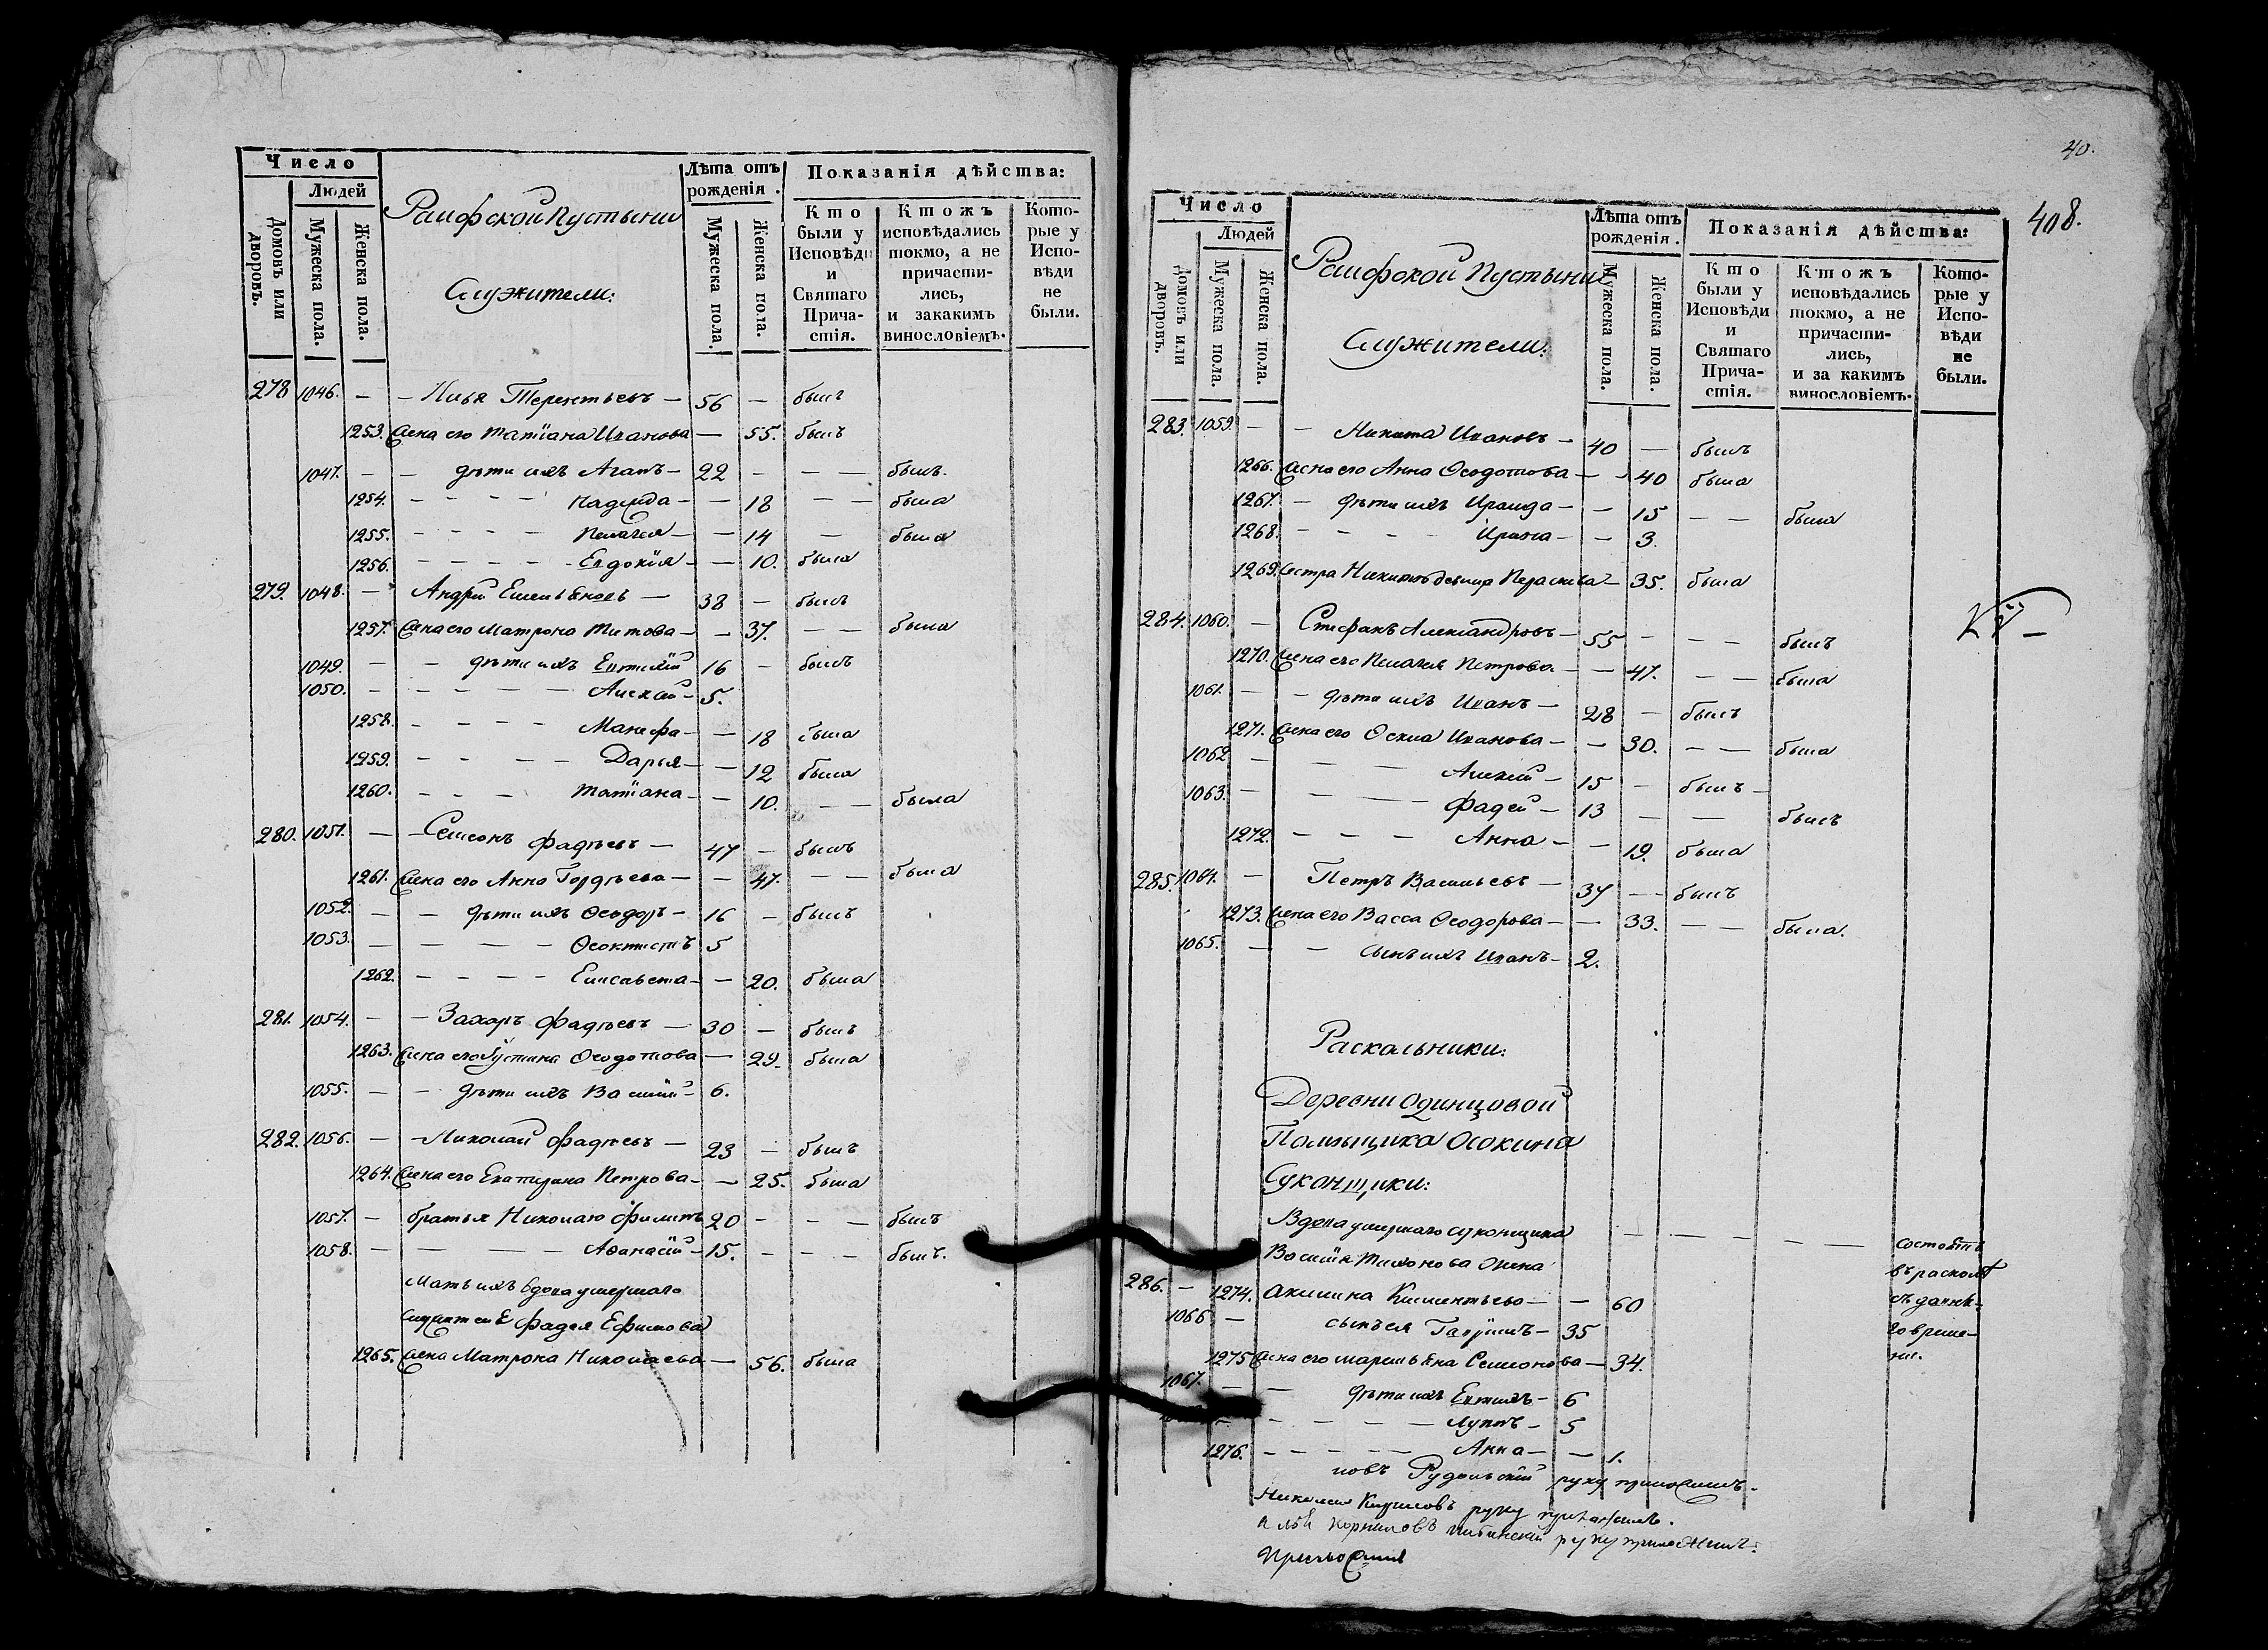 Число
Людей
Домовъ или дворовъ.
Мужеска пола.
Женска пола.
Раифской Пустыни
Служители:
Лѣта отъ рожденія.
Мужеска пола.
Женска пола.
Показанія дѣйства:
Кто были у Исповѣди и Святаго Причастія.
Ктожъ исповѣдались токмо, а не причастились, и закакимъ винословіемъ.
Которые у Исповѣди не были.
278 1046. — — Илья Терентьевъ — 56 — былъ
1253. Жена его Татіана Иванова — 55. былъ
1047. — — дѣти ихъ Агапъ — 22 — — — былъ.
1254. — — — — Надежда — — 18 — — была
1255. — — — — Пелагея — — 14 — была
1256. — — — — Евдокія — — 10. была
279. 1048. — Андрей Емельяновъ — 38 — былъ
1257. Жена его Матрона Титова — — 37. — — была
1049. — — дѣти ихъ Евтихій 16 — былъ
1050. — — — — — Алексей — 5.
1258. — — — — Манефа — — 18 была
1259. — — — — Дарья — — 12 была
1260. — — — Татіана — — 10. — — была
280. 1051. — — Семенъ Фадѣевъ — 47 — былъ
1261. Жена его Анна Гордѣева — — 47. — — была
1052. — — дѣти ихъ Ѳеодоръ — 16 — былъ
1053. — — — — Ѳеоктистъ 5
1262. — — — — Елисавета — — 20. была
281. 1054. — — Захаръ Фадѣевъ — 30 — былъ
1263. Жена его Іустина Ѳеодотова — 29. была
1055. — — дѣти ихъ Василій — 6.
282. 1056. — — Николай Фадѣевъ — 23 — былъ
1264. Жена его Екатерина Петрова — — 25. была
1057. — братья Николаю Филипъ 20 — — — былъ
1058. — — — — Аѳанасій — 15. — — — былъ.
Мать ихъ вдова умершаго
служителя Фадея Ефимова
1265. Жена Матрона Николаева — 56. была
40.
408.
Число
Людей
Домовъ или дворовъ.
Мужеска пола.
Женска пола.
Раифской Пустыни
Служители:
Лѣта отъ рожденія.
Мужеска пола.
Женска пола.
Показанія дѣйства:
Кто были у Исповѣди и Святаго Причастія.
Ктожъ исповѣдались токмо, а не причастились, и за какимъ винословіемъ.
Которые у Исповѣди не были.
283. 1059. — — Никита Ивановъ — 40 — былъ
1266. Жена его Анна Ѳеодотова — — 40 была
1267. — дѣти ихъ Ираида — — 15 — — была
1268. — — — Ирина — — 3.
1269. Сестра Никиты девица Параскева — 35. была
284. 1060. — Стефанъ Александровъ — 55 — — — былъ
1270. Жена его Пелагея Петрова — — 47. — — была
1061. — — дѣти ихъ Иванъ — 28 — былъ
1271. Жена его Ѳекла Иванова — — 30. — — была
1062 — — — Алексей — 15 — былъ —
1063. — — — Фадей — 13 — — былъ
1272. — — — Анна — — 19. была
285. 1064. — Петръ Васильевъ — 37 — — былъ
1273. Жена его Васса Ѳеодорова — — 33. — — была.
1065. — — сынъ ихъ Иванъ — 2.
Раскольники:
Деревни Одинцовой
Помѣщика Осокина
Суконщики:
Вдова умершаго суконщика — — — — — состоитъ
Василія Тихонова жена въ расколѣ
286. — 1274. Акилина Климентьева — — 60 съ давня-
1066 — сынъ ея — 35 го време-
1275 Жена его Маремьяна Семенова — 34. ни.
1067. — — дѣти ихъ Евтихъ — 6
— — — — Луппъ — 5
1276. — — — — — Анна — — 1.
руку приложилъ.
руку приложилъ.
Корниловъ руку приложилъ.